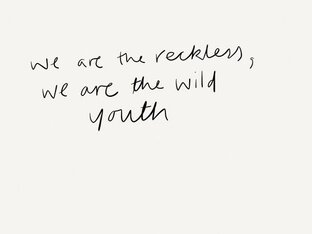 we are the reckless,
we are the wild
youth